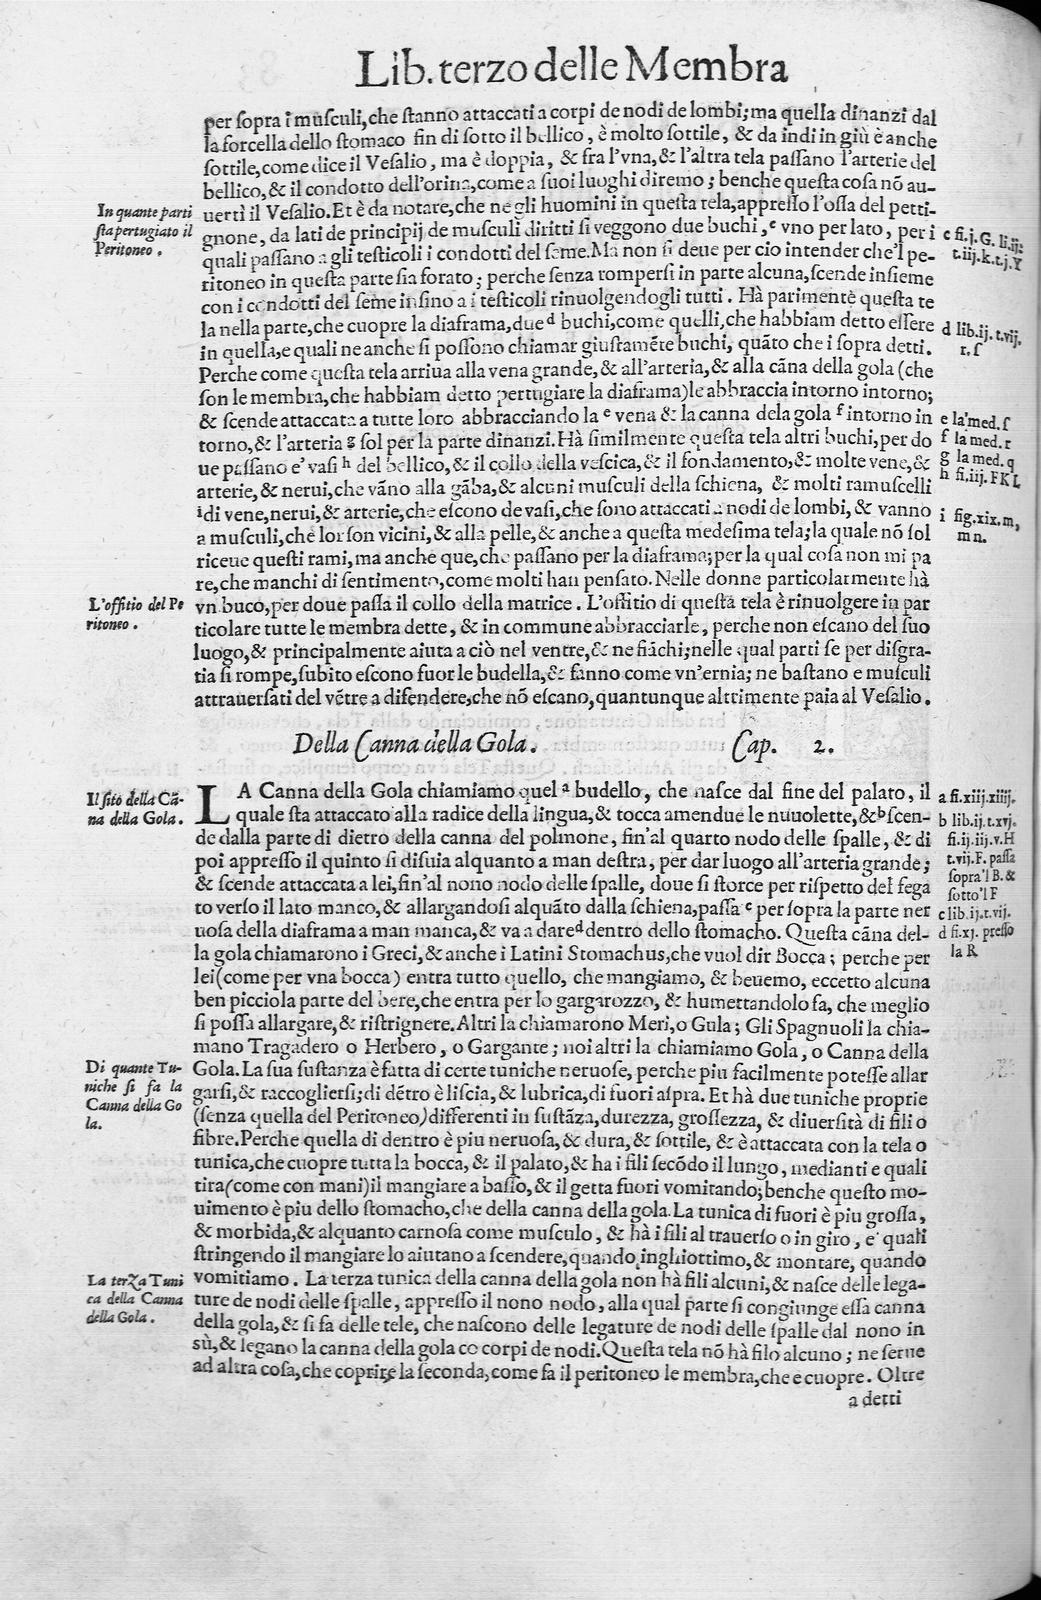 Lib. terzo delle Membra
per ſopra i muſculi, che ſtanno attaccati a corpi de nodi de lombi; ma quella dinanzi dal
la forcella dello ſtomaco fin di ſotto il bellico, è molto ſottile, & da indi in giù è anche
ſottile, come dice il Veſalio, ma è doppia, & fra l'vna, & l'altra tela paſſano l'arterie del
bellico, & il condotto dell'orina, come a ſuoi luoghi diremo; benche queſta coſa nõ au-
uertì il Veſalio. Et è da notare, che negli huomini in queſta tela, appreſſo l'oſſa del petti-
gnone, da lati de principij de muſculi diritti ſi veggono due buchi, c vno per lato, per i
quali paſſano a gli teſticoli i condotti del ſeme. Ma non ſi deue per cio intender che'l pe-
ritoneo in queſta parte ſia forato; perche ſenza romperſi in parte alcuna, ſcende inſieme
con i condotti del ſeme inſino a i teſticoli rinuolgendogli tutti. Hà parimente queſta te
la nella parte, che cuopre la diaframa, due d buchi, come quelli, che habbiam detto eſſere
in quella, e quali ne anche ſi poſſono chiamar giuſtamẽte buchi, quãto che i ſopra detti.
Perche come queſta tela arriua alla vena grande, & all'arteria, & alla cãna della gola (che
ſon le membra, che habbiam detto pertugiare la diaframa) le abbraccia intorno intorno;
& ſcende attaccata a tutte loro abbracciando la e vena & la canna dela gola f intorno in
torno, & l'arteria g ſol per la parte dinanzi. Hà ſimilmente queſta tela altri buchi, per do
ue paſſano e' vaſi h del bellico, & il collo della veſcica, & il fondamento, & molte vene, &
arterie, & nerui, che vãno alla gãba, & alcuni muſculi della ſchiena, & molti ramuſcelli
i di vene, nerui, & arterie, che eſcono de vaſi, che ſono attaccati a nodi de lombi, & vanno
a muſculi, che lor ſon vicini, & alla pelle, & anche a queſta medeſima tela; la quale nõ ſol
riceue queſti rami, ma anche que, che paſſano per la diaframa; per la qual coſa non mi pa
re, che manchi di ſentimento, come molti han penſato. Nelle donne particolarmente hà
vn buco, per doue paſſa il collo della matrice. L'offitio di queſta tela è rinuolgere in par
ticolare tutte le membra dette, & in commune abbracciarle, perche non eſcano del ſuo
luogo, & principalmente aiuta a ciò nel ventre, & ne fiãchi; nelle qual parti ſe per diſgra-
tia ſi rompe, ſubito eſcono fuor le budella, & fanno come vn'ernia; ne baſtano e muſculi
attrauerſati del vẽtre a difendere, che nõ eſcano, quantunque altrimente paia al Veſalio.
In quante parti
ſta pertugiato il
Peritoneo.
L'offitio del Pe
ritoneo.
c fi. j. G. li. ij.
t. iij. k. t. j. Y
d lib. ij. t. vij.
r. ſ
e la'med. ſ
f la med. r
g la med. q
h fi. iij. F K L
i fig. xix. m,
m n.
Della Canna della Gola. Cap. 2.
LA Canna della Gola chiamiamo quel a budello, che naſce dal fine del palato, il
quale ſta attaccato alla radice della lingua, & tocca amendue le nuuolette, & b ſcen-
de dalla parte di dietro della canna del polmone, fin'al quarto nodo delle ſpalle, & di
poi appreſſo il quinto ſi diſuia alquanto a man deſtra, per dar luogo all'arteria grande;
& ſcende attaccata a lei, fin'al nono nodo delle ſpalle, doue ſi ſtorce per riſpetto del fega
to verſo il lato manco, & allargandoſi alquãto dalla ſchiena, paſſa c per ſopra la parte ner
uoſa della diaframa a man manca, & va a dare d dentro dello ſtomacho. Queſta cãna del-
la gola chiamarono i Greci, & anche i Latini Stomachus, che vuol dir Bocca; perche per
lei (come per vna bocca) entra tutto quello, che mangiamo, & beuemo, eccetto alcuna
ben picciola parte del bere, che entra per lo gargarozzo, & humettandolo fa, che meglio
ſi poſſa allargare, & riſtrignere. Altri la chiamarono Meri, o Gula; Gli Spagnuoli la chia-
mano Tragadero o Herbero, o Gargante; noi altri la chiamiamo Gola, o Canna della
Gola. La ſua ſuſtanza è fatta di certe tuniche neruoſe, perche piu facilmente poteſſe allar
garſi, & raccoglierſi; di dẽtro è liſcia, & lubrica, di fuori aſpra. Et hà due tuniche proprie
(ſenza quella del Peritoneo) differenti in ſuſtãza, durezza, groſſezza, & diuerſità di fili o
fibre. Perche quella di dentro è piu neruoſa, & dura, & ſottile, & è attaccata con la tela o
tunica, che cuopre tutta la bocca, & il palato, & ha i fili ſecõdo il lungo, medianti e quali
tira (come con mani) il mangiare a baſſo, & il getta fuori vomitando; benche queſto mo-
uimento è piu dello ſtomacho, che della canna della gola. La tunica di fuori è piu groſſa,
& morbida, & alquanto carnoſa come muſculo, & hà i fili al trauerſo o in giro, e' quali
ſtringendo il mangiare lo aiutano a ſcendere, quando inghiottimo, & montare, quando
vomitiamo. La terza tunica della canna della gola non hà fili alcuni, & naſce delle lega-
ture de nodi delle ſpalle, appreſſo il nono nodo, alla qual parte ſi congiunge eſſa canna
della gola, & ſi fa delle tele, che naſcono delle legature de nodi delle ſpalle dal nono in
sù, & legano la canna della gola co corpi de nodi. Queſta tela nõ hà filo alcuno; ne ſerue
ad altra coſa, che coprire la ſeconda, come fa il peritoneo le membra, che e cuopre. Oltre
a detti
Il ſito della Cã-
na della Gola.
Di quante Tu-
niche ſi fa la
Canna della Go
la.
La terza Tuni
ca della Canna
della Gola.
a fi. xiij. xiiij.
b lib. ij. t. xvj.
fi. ij. iij. v. H
t. vij. F. paſſa
ſopra'l B. &
ſotto'l F
c lib. ij. t. vij.
d fi. xj. preſſo
la R